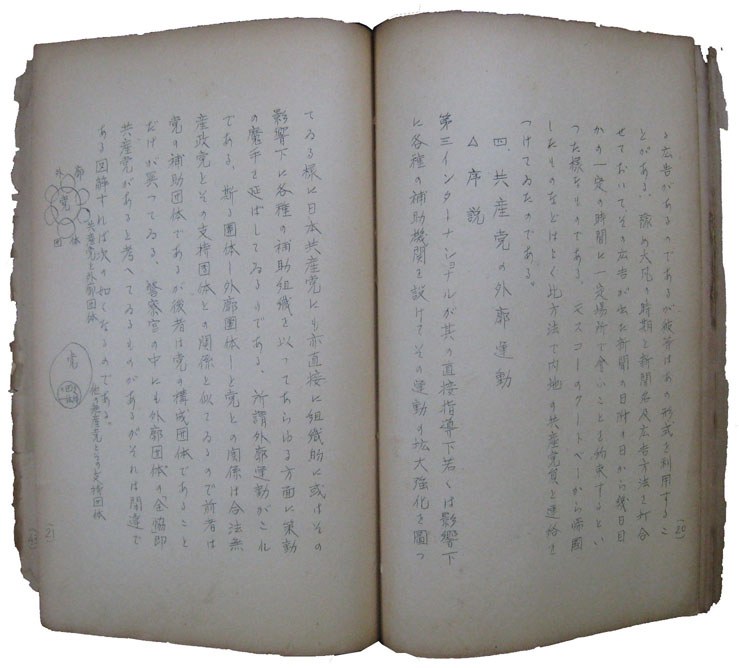 る広告があるのであるが彼等はあの形式を利用するこ
とがある、予め大凡の時期と新聞名及広告方法を打合
せておいてその広告が出た新聞の日附の日から幾日目
かの一定の時間に一定場所で会ふことを約束するとい
った様なものである、モスコーのクートベーから帰国
したものなどはよく此方法で内地の共産党員と連絡を
つけてゐたのである。
四、共産党の外廓運動
△序説
第三インターナショナルが其の直接指導下若くは影響下
に各種の補助機関を設けてその運動の拡大強化を図つ
(20)
てゐる様に日本共産党にも亦直接に組織的に或はその
影響下に各種の補助組織を以つてあらゆる方面に策動
の魔手を延ばしてゐるのである、所謂外廓運動がこれ
である、斯る団体し外廓団体しと党との関係は合法無
産政党とその支持団体との関係と似てゐるので前者は
党の補助団体であるが後者は党の構成団体であること
だけが異つてゐる、警察官の中にも外廓団体の「全協」即
共産党があると考へてゐるものがあるがそれは間違で
ある図解すれば次の如くなるのである。
外 廓
党
団 体
共産党と外廓団体
党
団体
他の無産党とその支持団体
(21)